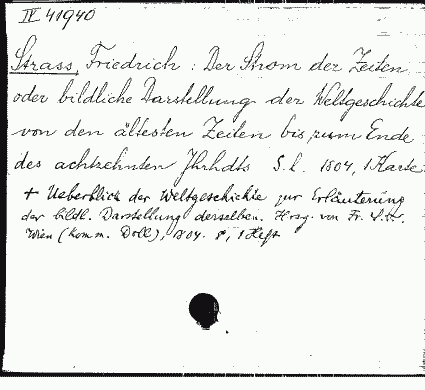 IV 41940
Strass, Friedrich : Der Strom der Zeiten
oder bildliche Darstellung der Weltgeschichte
von den ältesten Zeiten bis zum Ende
des achtzehnten Jhrhdts S. l. 1804, 1 Karte
+ Ueberblick der Weltgeschichte zur Erläuterung
der bildl. Darstellung derselben. Hrsg. von Fr. St.
Wien (Komm. Doll), 1804. 8°, 1 Heft